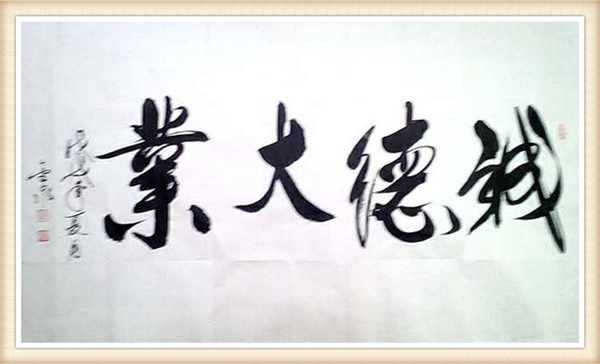 誠德大業
年夏月